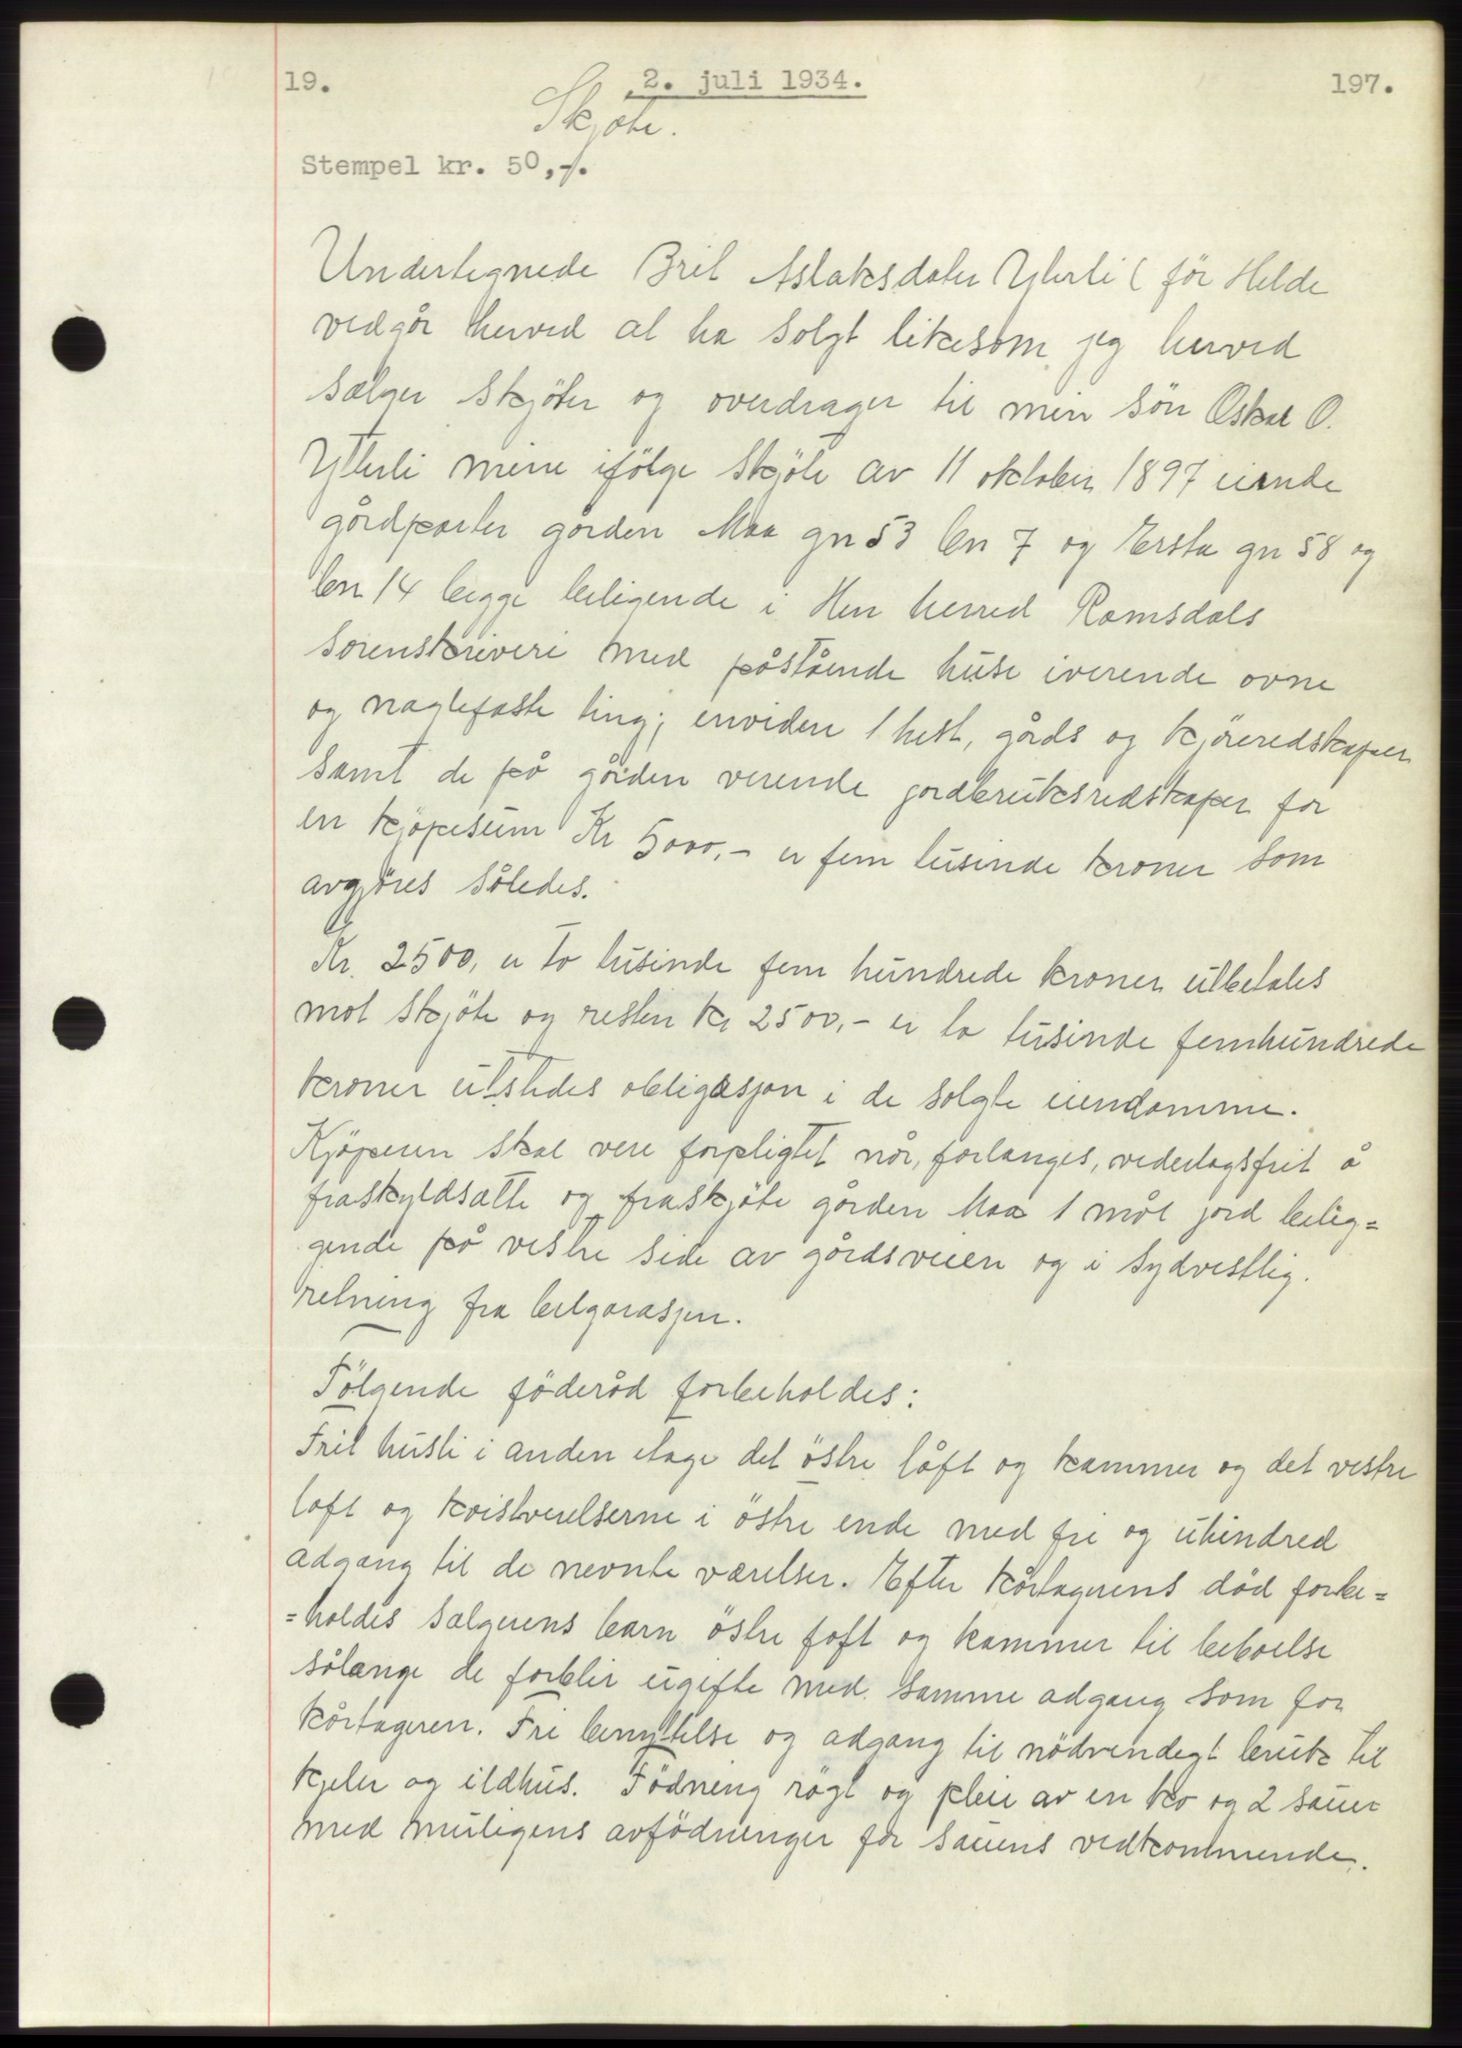 19.
2. juli 1934.
197.
Skjøte.
Stempel kr. 50,-/.
Undertegnede Brit Aslaksdater Yterli ( før Helde
vedgår herved at ha solgt likesom jeg herved
sælger skjöter og overdrager til min sön Oskar O.
Yterli mine ifölge skjöte av 11 oktober 1897 eiende
gårdparter gården Maa gn 53 bn 7 og Ersta gn 58 og
bn 14 begge beligende i Hen herred Romsdals
sorenskriveri med påstående huse iverende ovne
og naglefaste ting; enviden 1 hest, gårds og kjöreredskaper
samt de på gården verende jordbruksredskaper for
en kjöpesum Kr 5000,- er fem tusinde kroner som
avgjöres således.
Kr. 2500, er to tusinde fem hundrede kroner utbetales
mot skjöte og resten kr 2500,- er to tusinde femhundrede
kroner utstedes obligasjon i de solgte eiendomme.
Kjöperen skal vere forpligtet når, forlanges, vederlagsfrit å
fraskyldsætte og fraskjöte gården Maa 1 mål jord belig=
gende på vestre side av gårdsveien og i sydvestlig.
retning fra bilgarasjen.
Fölgende föderåd forbeholdes:
Frit husli i anden etage det östre låft og kammer og det vestre
loft og kvistverelserne i östre ende med fri og uhindred
adgang til de nevnte værelser. Efter kårtagerens död forbe=
=holdes sælgerens barn östre loft og kammer til beboelse
sålænge de forblir ugifte med samme adgang som for
kårtageren. Fri benyttelse og adgang til nödvendigt bruk til
kjeler og ildhus. Födning røgt og pleie av en ko og 2 sauer
med muligens avfödninger for sauens vedkommende.